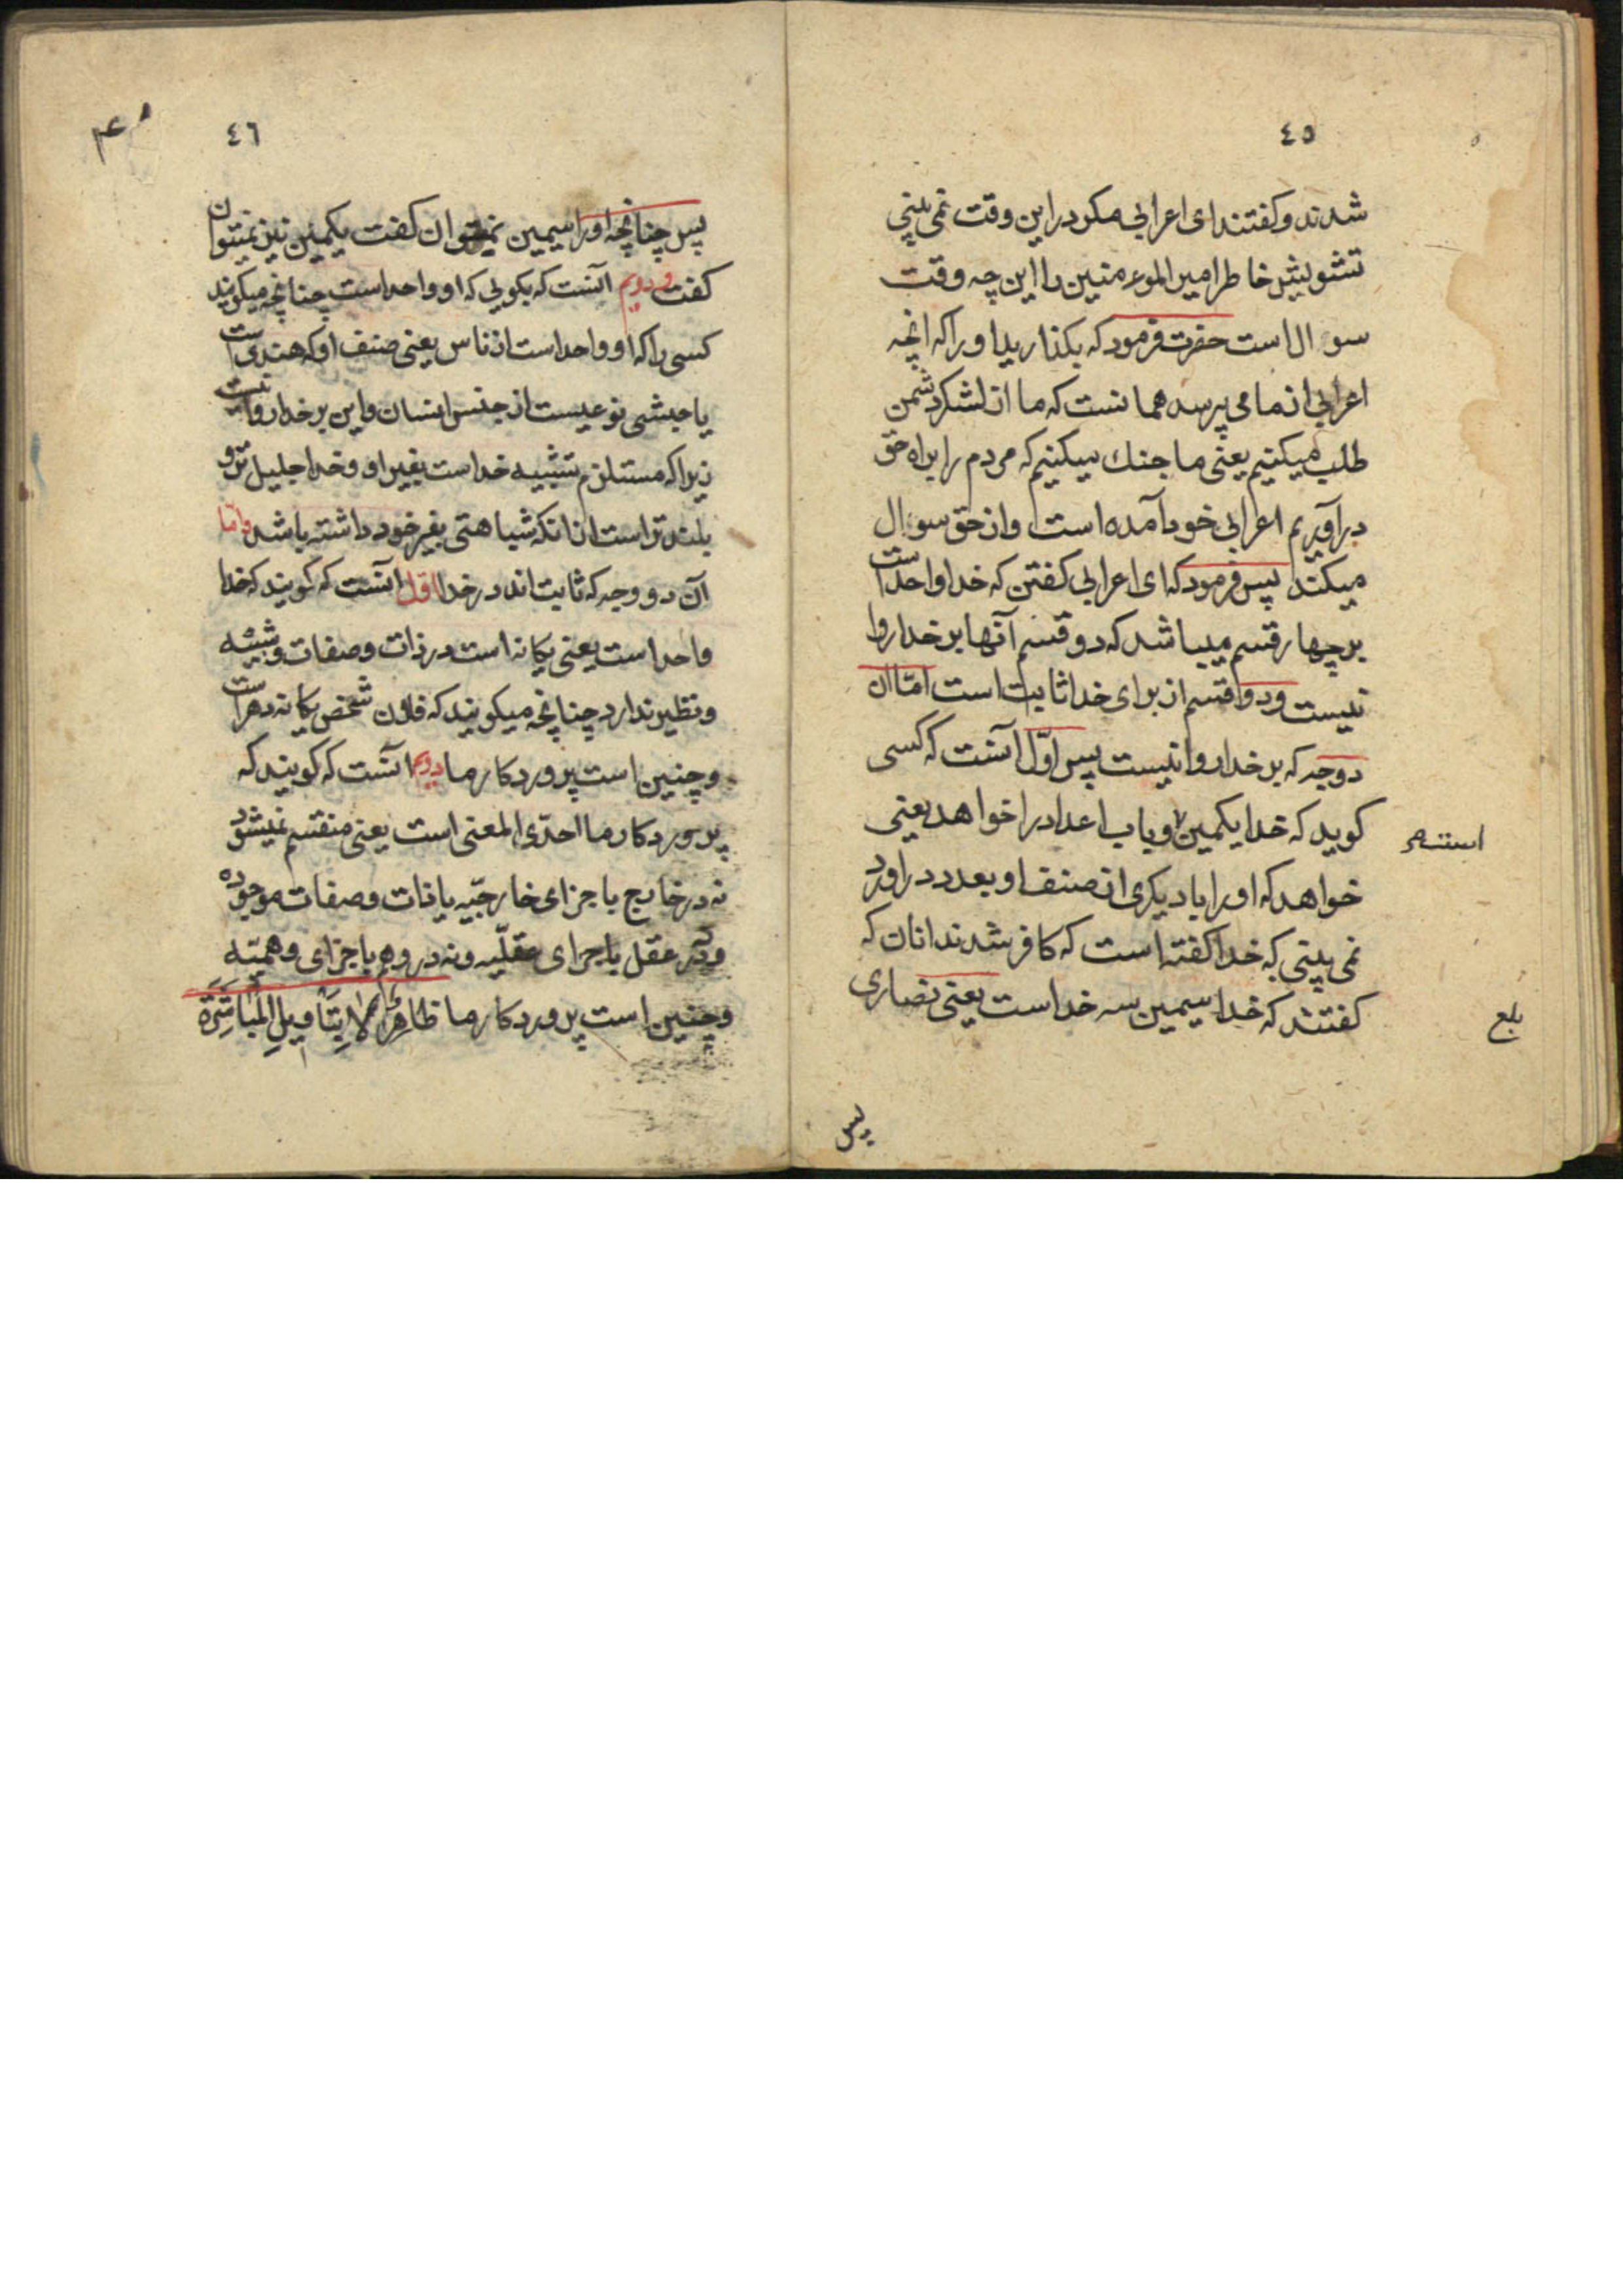 ٤٥
شدند و کفتند ای اعرابی مکر در این وقت نمی بینی
تشویش خاطر امیر المومنین را این چه وقت
سوال است حضرت فرمود که بکذارید او را که انچه
اعرابی از ما می پرسد همانست که ما از لشکر دشمن
طلب میکنیم یعنی ما جنك میکنیم که مردم را براه حق
درآوریم اعرابی خود آمده است و از حق سوال
میکند پس فرمود که ای اعرابی کفتن که خدا واحد است
بر چهار قسم میباشد که دو قسم آنها بر خدا روا
نیست و دو قسم از برای خدا ثابت است امّا ان
دو وجه که بر خدا روا نیست پس اوّل آنست که کسی
کوید که خدا یکمین و باب اعداد را خواهد یعنی
خواهد که او را با دیکری از صنف او بعدد دراورد
نمی بینی که خدا کفته است که کافر شدند انان که
کفتند که خدا سیمین سه خداست یعنی نصاری
بلغ
پس
٤٦
پس چنانچه او را سیمین نمیتوان کفت یکمین نیز نمیتوان
کفت و دویم آنست که بکویی که او واحد است چنانچه میکویند
کسی را که او واحد است از ناس یعنی صنف او که هندی است
یا حبشی نوعیست از جنس انسان و این بر خدا روا نیست
زیرا که مستلزم تشبیه خداست بغیر او و خدا جلیل تر و
بلند تر است از انکه شباهتی بغیر خود داشته باشد و امّا
آن دو وجه که ثابت اند در خدا اوّل آنست که کویند که خدا
واحد است یعنی یکانه است در ذات و صفات و شبیه
و نظیر ندارد چنانچه میکویند که فلان شخص یکانه دهر است
و چنین است پروردکار ما دویم آنست که کویند که
پروردکار ما احدّی المعنی است یعنی منقسم نمیشود
نه در خارج باجزای خارجیّه یا ذات و صفات موجوده
و نه در عقل باجزای عقلّیه و نه در وهم باجزای وهمیّه
و چنین است پروردکار ما ظَاهِرٌ لَا بِتَأْوِيلِ الْمُبَاشَرَةِ